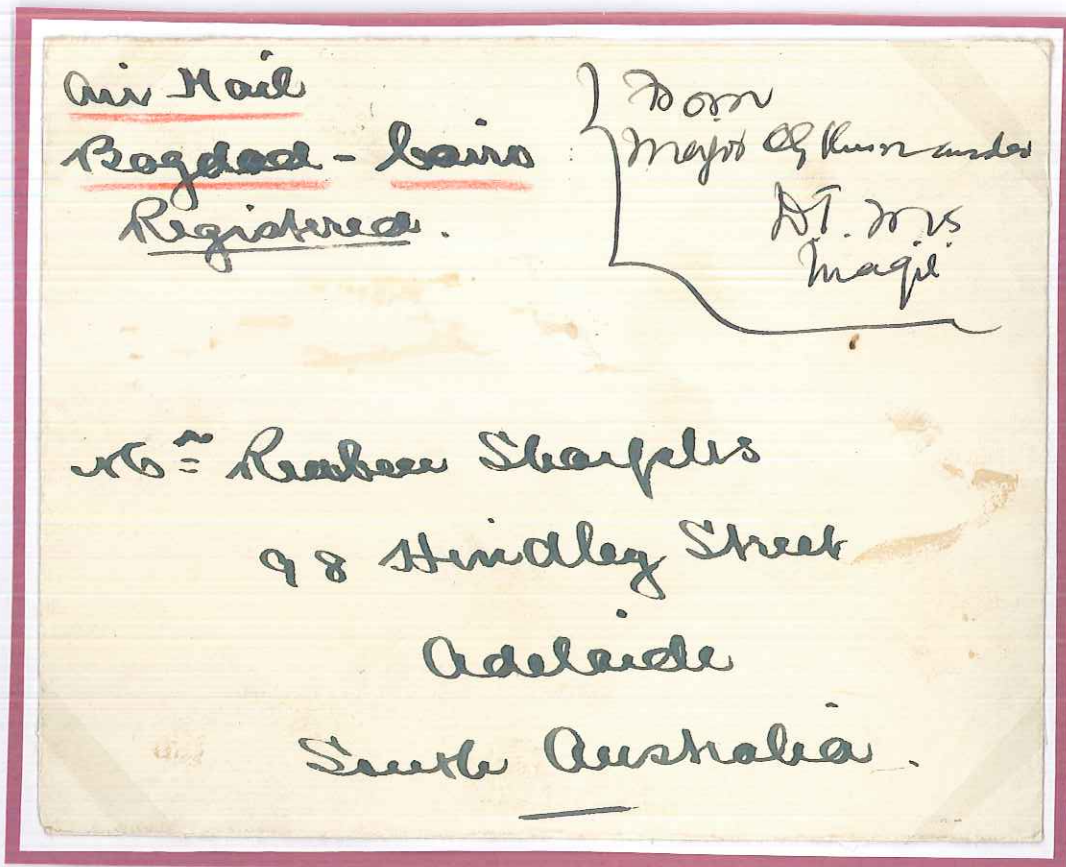 Air Mail
Bagdad - Cairo
Registered.
From
Major
DT.
Magil
Mr Reuben Sharples
98 Hindley Street
Adelaide
South Australia.